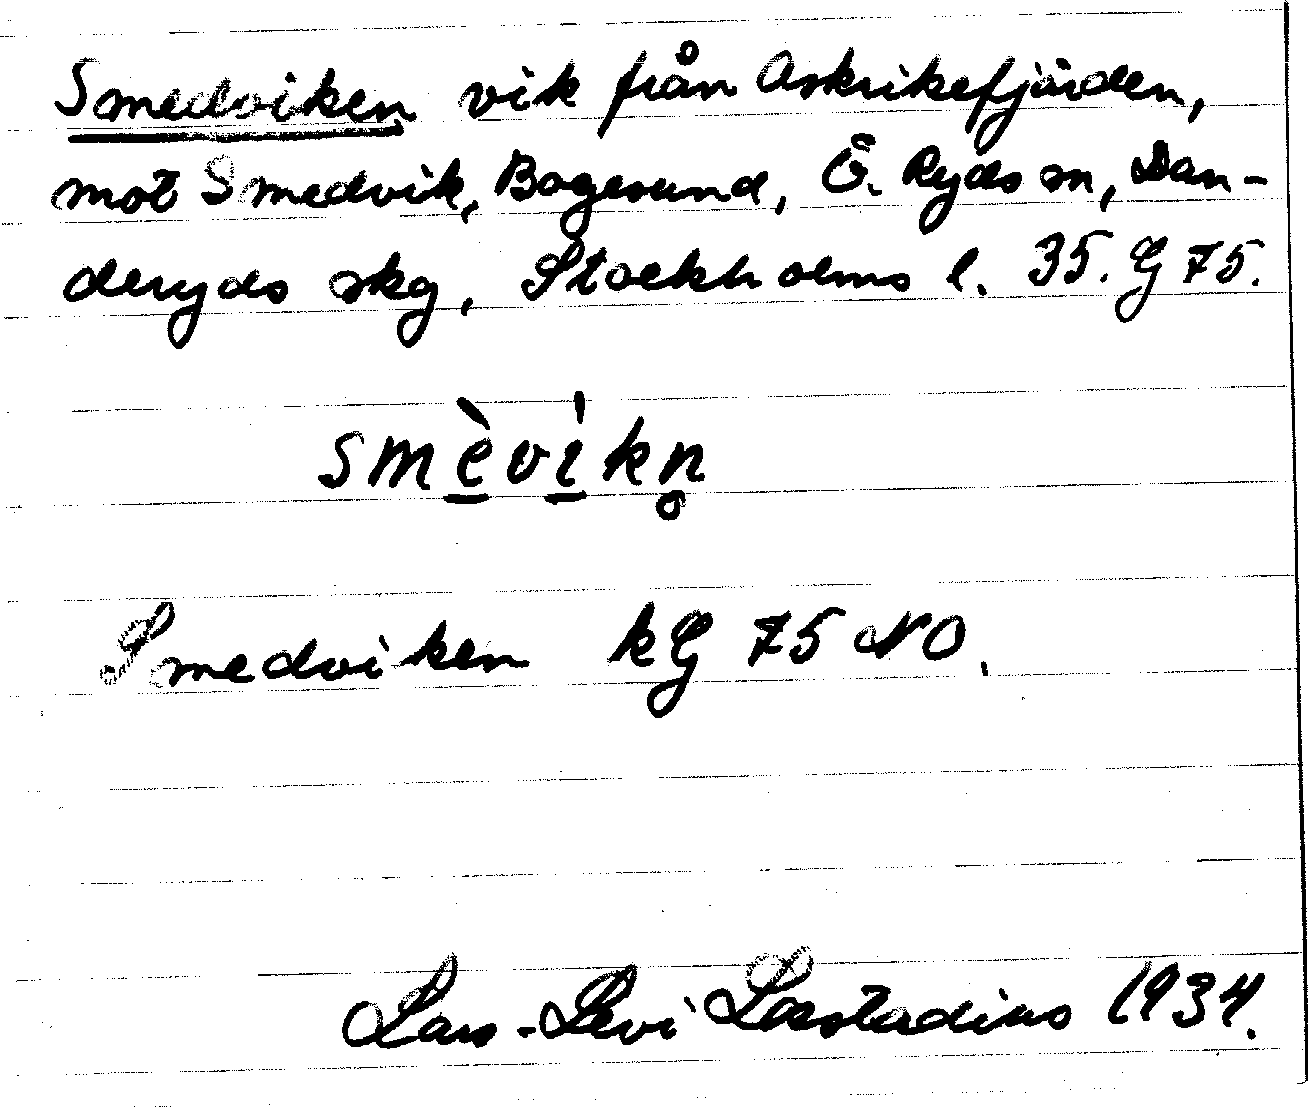 Smedviken vik från Askrikefjärden,
mot Smedvik, Bogesund, Ö. Ryds sn, Dan-
deryds skg, Stockholms l. 35. G 75.
smè̱vi̱̍kn̥
Smedviken kG 75 NO.
Lars-Levi Læstadius 1934.